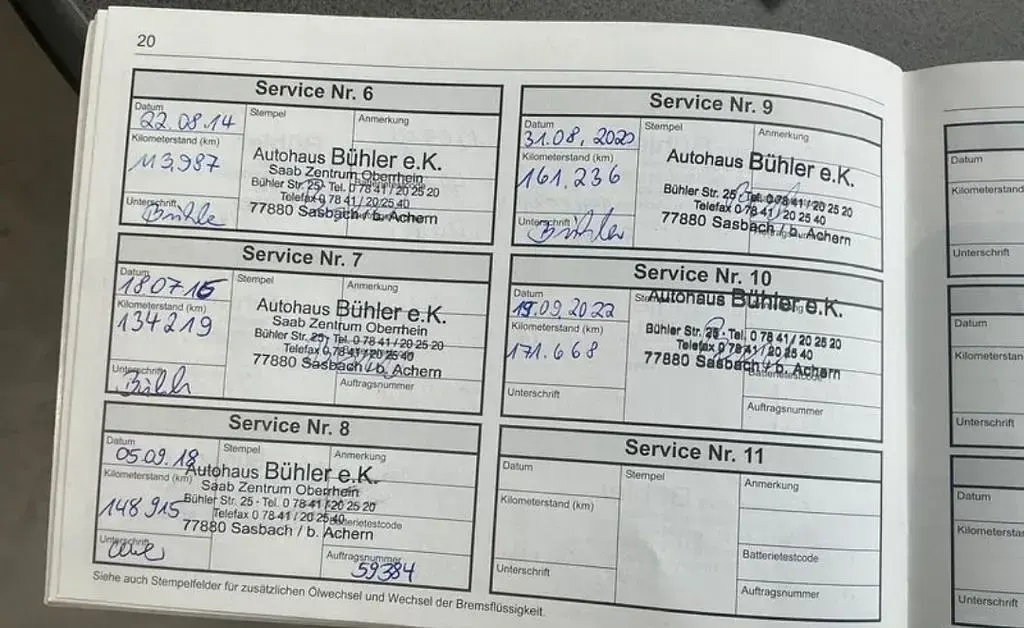 20
Service Nr. 6
Datum
22.08.14
Kilometerstand (km)
113,987
Unterschrift
Bühle
Stempel
Anmerkung
Autohaus Bühler e.K.
Saab Zentrum Oberrhein
Bühler Str. 25 · Tel. 0 78 41 / 20 25 20
Telefax 0 78 41 / 20 25 40
77880 Sasbach / b. Achern
Service Nr. 7
Datum
180715
Kilometerstand (km)
134219
Unterschrift
Stempel
Anmerkung
Autohaus Bühler e.K.
Saab Zentrum Oberrhein
Bühler Str. 25 · Tel. 0 78 41 / 20 25 20
Telefax 0 78 41 / 20 25 40
77880 Sasbach / b. Achern
Auftragsnummer
Service Nr. 8
Datum
05.09.18
Kilometerstand (km)
148915
Unterschrift
Stempel
Anmerkung
Autohaus Bühler e.K.
Saab Zentrum Oberrhein
Bühler Str. 25 · Tel. 0 78 41 / 20 25 20
Telefax 0 78 41 / 20 25 40
Batterietestcode
77880 Sasbach / b. Achern
Auftragsnummer
59384
Siehe auch Stempelfelder für zusätzlichen Ölwechsel und Wechsel der Bremsflüssigkeit.
Service Nr. 9
Datum
31.08.2020
Kilometerstand (km)
161.236
Unterschrift
Bühler
Stempel
Anmerkung
Autohaus Bühler e.K.
Bühler Str. 25 · Tel. 0 78 41 / 20 25 20
Telefax 0 78 41 / 20 25 40
77880 Sasbach / b. Achern
Service Nr. 10
Datum
19.09.2022
Kilometerstand (km)
171.668
Unterschrift
Autohaus Bühler e.K.
Bühler Str. 25 · Tel. 0 78 41 / 20 25 20
Telefax 0 78 41 / 20 25 40
77880 Sasbach / b. Achern
Batterietestcode
Auftragsnummer
Service Nr. 11
Datum
Kilometerstand (km)
Unterschrift
Stempel
Anmerkung
Batterietestcode
Auftragsnummer
Datum
Kilometerstand
Unterschrift
Datum
Kilometerstan
Unterschrift
Datum
Kilometersta
Unterschrift